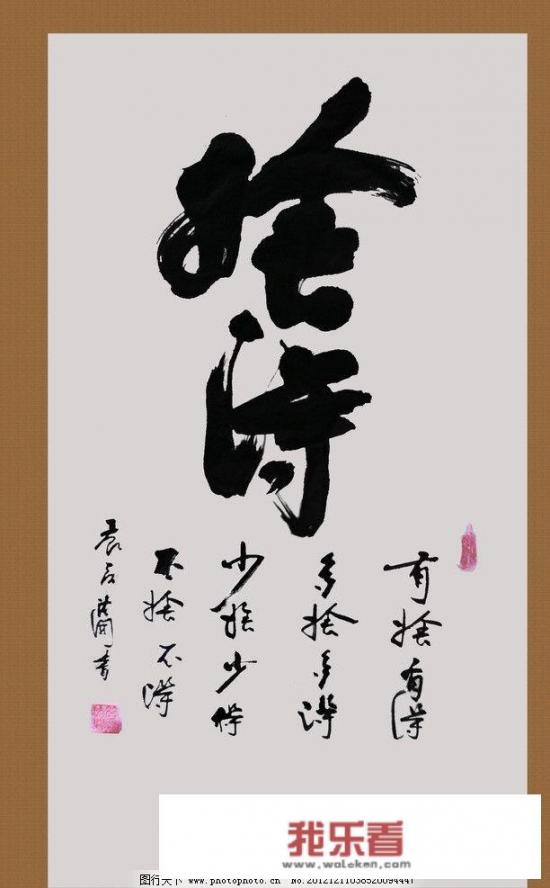 捨得
有捨有得
多捨多得
少捨少得
不捨不得
我乐看
www.woleken.com
图行天下 www.photophoto.cn No.20121211038520094447